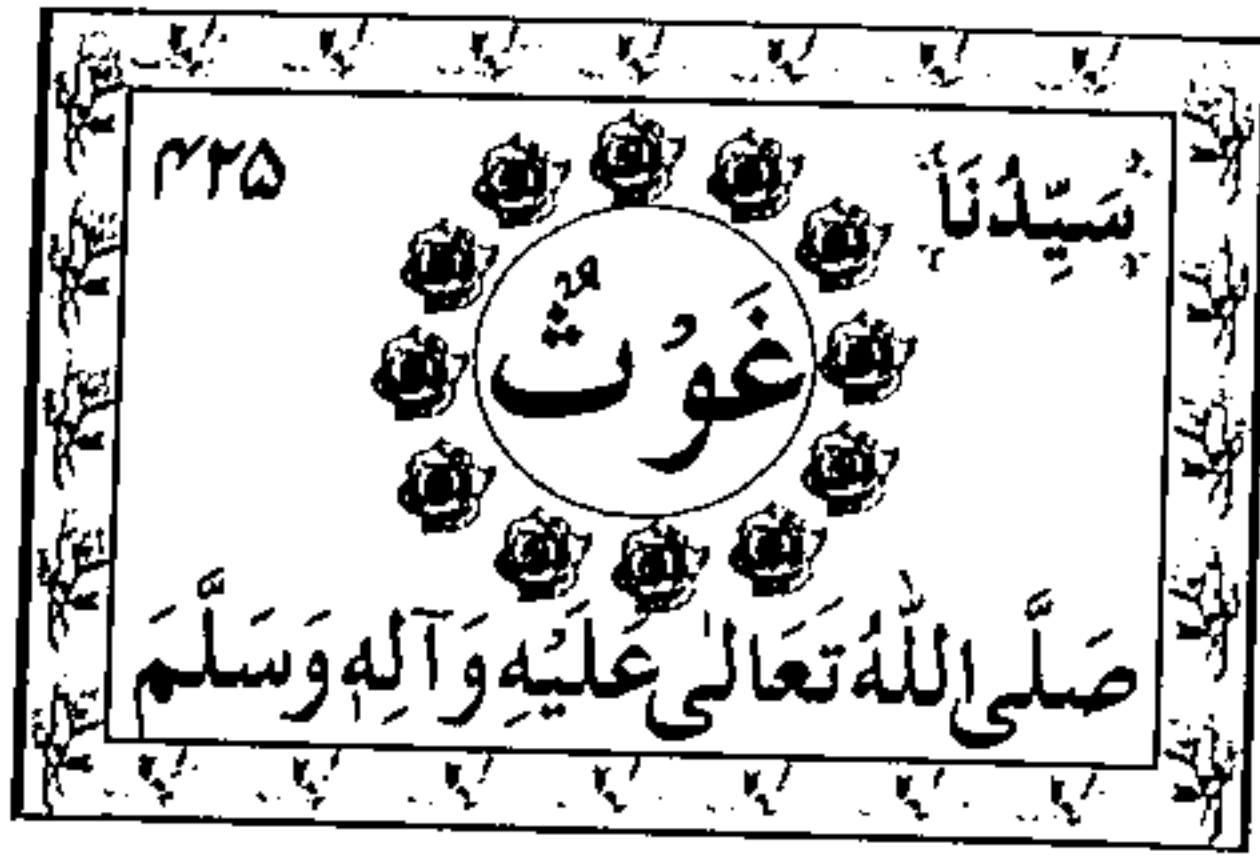 سَيِّدُنَا
۴۲۵
غَوْثٌ
صَلَّى اللّٰهُ تَعَالٰى عَلَيْهِ وَآلِهٖ وَسَلَّمَ